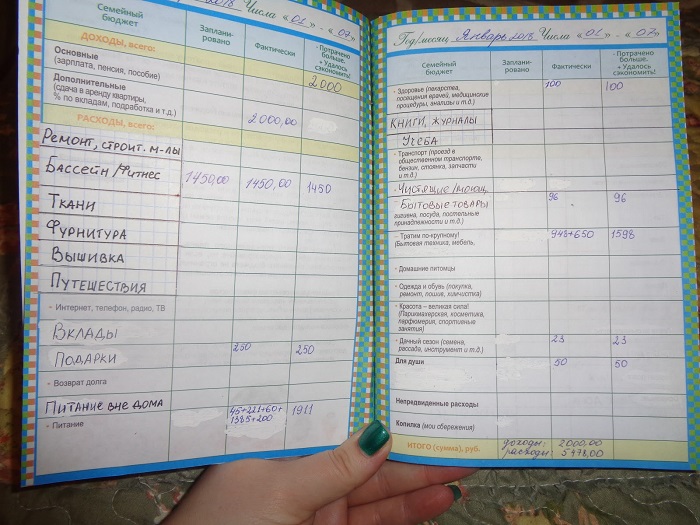 2018 Числа «01» - «07»
Семейный бюджет
Заплани-ровано
Фактически
- Потрачено больше.
+ Удалось сэкономить!
ДОХОДЫ, всего:
2000
Основные
(зарплата, пенсия, пособие)
Дополнительные
(сдача в аренду квартиры,
% по вкладам, подработка и т.д.)
2000,00
РАСХОДЫ, всего:
Ремонт, строит. м-лы
Бассейн/Фитнес 1450,00 1450,00 1450
Ткани
Фурнитура
Вышивка
Путешествия
- Интернет, телефон, радио, ТВ
Вклады
Подарки 250 250
- Возврат долга
Питание вне дома 45+221+60+ 1911
- Питание 1385+200
Год/месяц Январь 2018 Числа «01» - «07»
Семейный бюджет
Заплани-ровано
Фактически
- Потрачено больше.
+ Удалось сэкономить!
- Здоровье (лекарства, 100 100
посещения врачей, медицинские
процедуры, анализы и т.д.)
Книги, журналы
Учеба
- Транспорт (проезд в
общественном транспорте,
бензин, стоянка, запчасти
и т.д.)
- Чистящие/моющ.
Бытовые товары 96 96
гигиена, посуда, постельные
принадлежности и т.д.)
- Тратим по-крупному! 948+650 1598
(Бытовая техника, мебель,
- Домашние питомцы
- Одежда и обувь (покупка,
ремонт, пошив, химчистка)
- Красота – великая сила!
(Парикмахерская, косметика,
парфюмерия, спортивные
занятия)
- Дачный сезон (семена, 23 23
рассада, инструмент и т.д.)
Для души 50 50
Непредвиденные расходы
Копилка (мои сбережения)
ИТОГО (сумма), руб. доходы: 2000,00
расходы: 5378,00